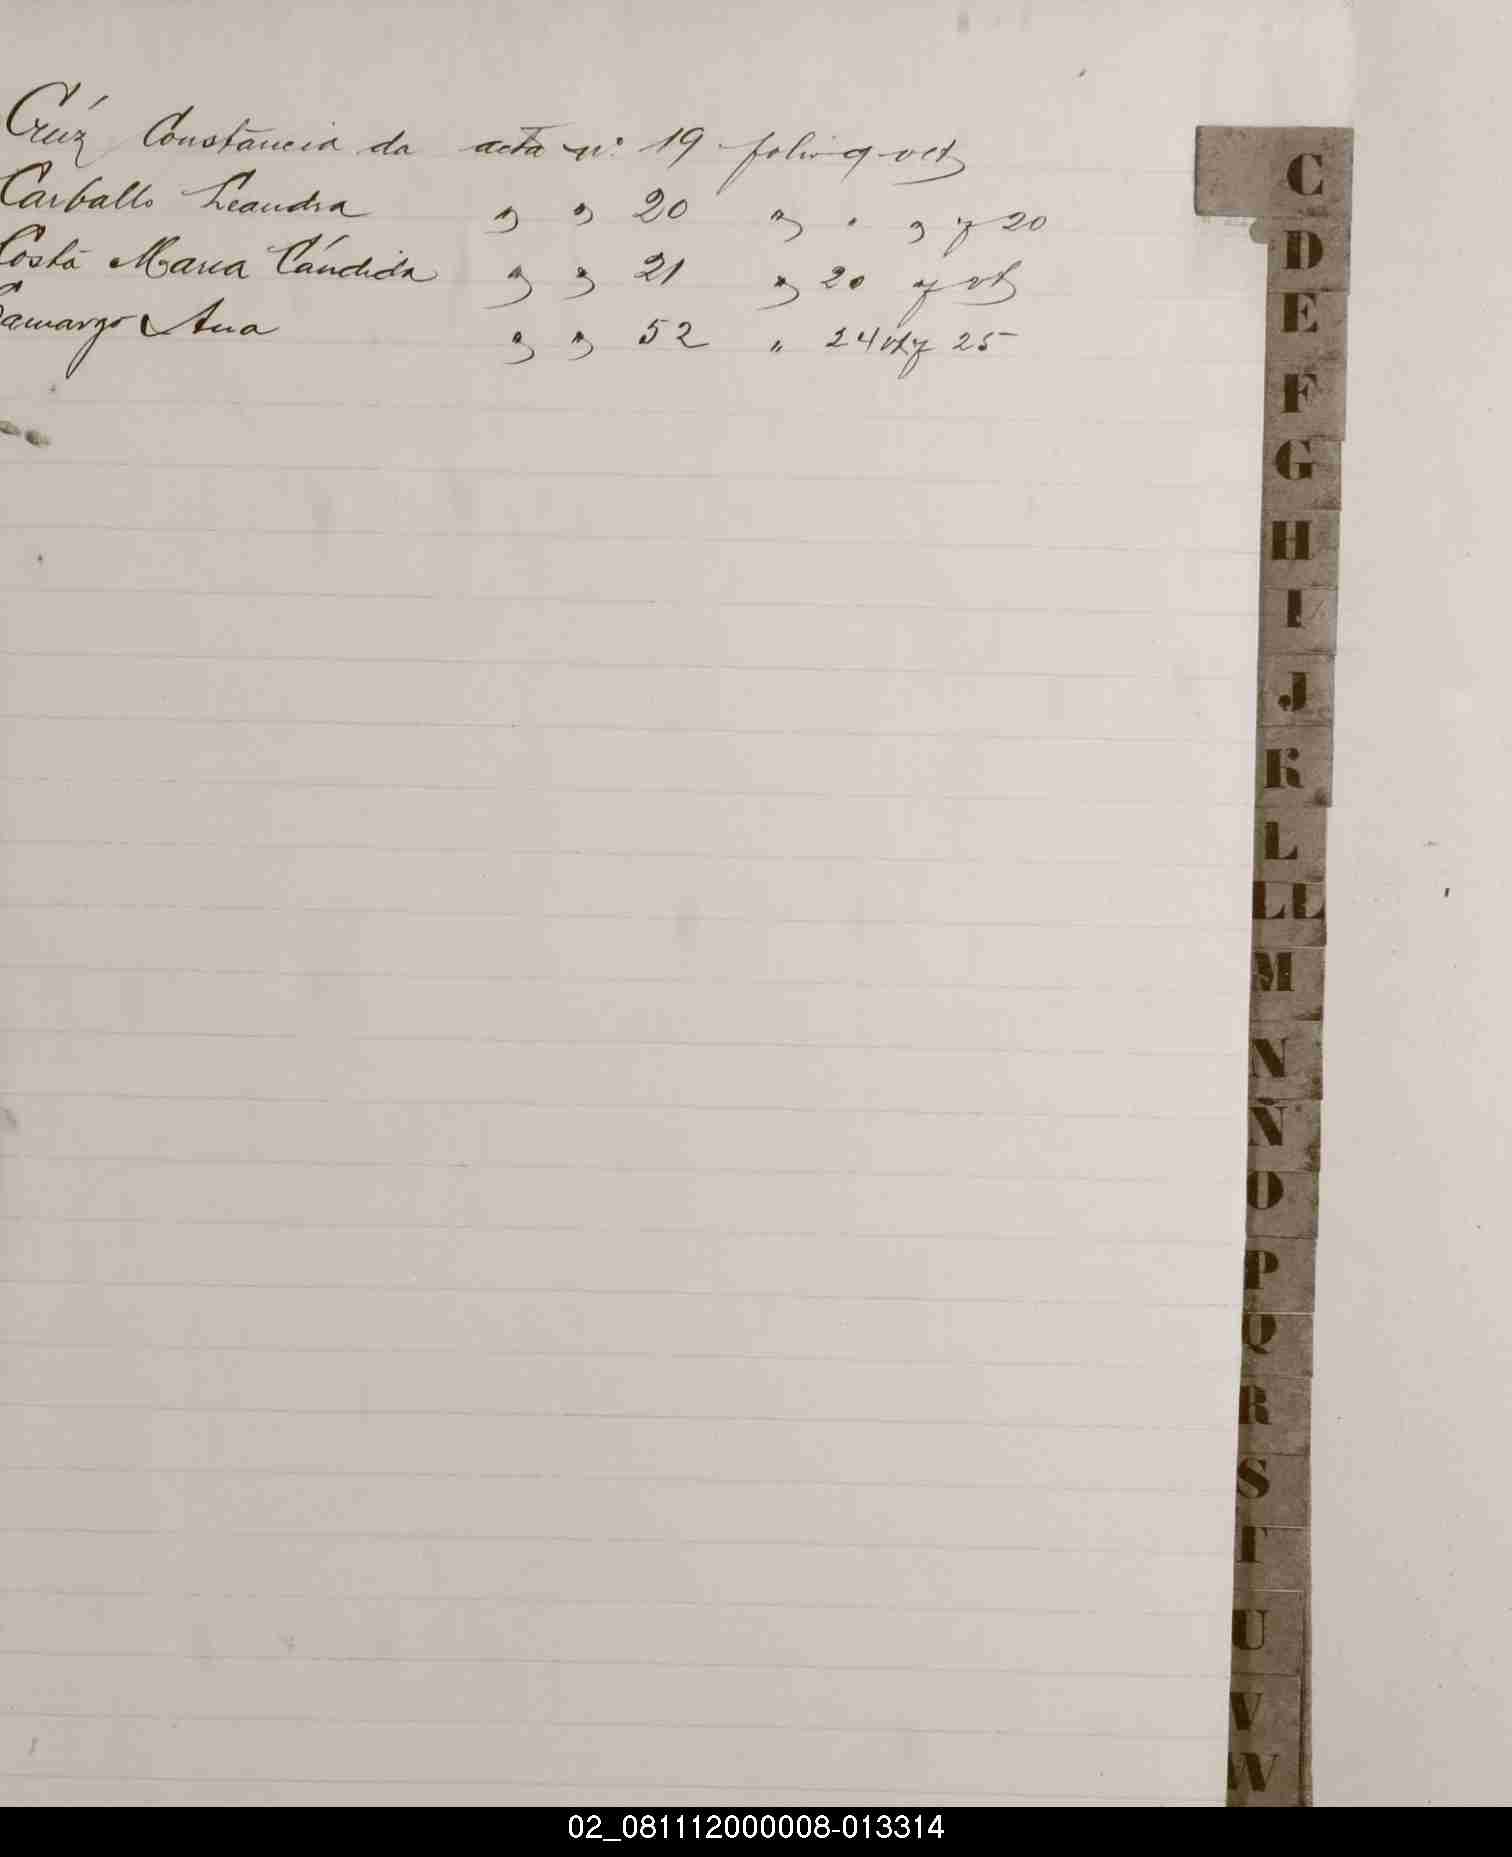 Crúz Constáncia da acta nº 19 folio 9 vct
Carballo Leandra " " 20 " " " y 20
Costa Maria Cándida " " 21 " 20 y vt
Camargo Ana " " 52 " 24 vt y 25
C
D
E
F
G
H
I
J
K
L
LL
M
N
Ñ
O
P
Q
R
S
T
U
V
W
02_081112000008-013314